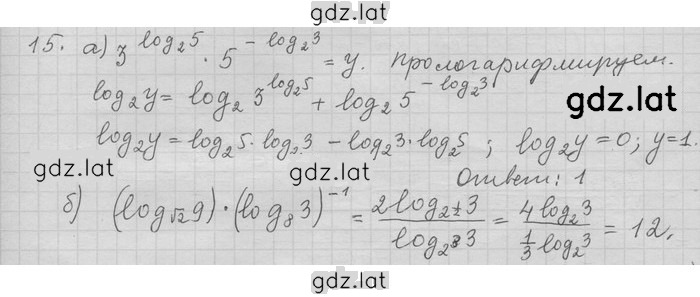 gdz.lat
15. а) 3^{log₂5} · 5^{-log₂3} = y. Прологарифмируем.
log₂y = log₂ 3^{log₂5} + log₂ 5^{-log₂3}
gdz.lat
gdz.lat
log₂y = log₂5 · log₂3 - log₂3 · log₂5 ; log₂y = 0; y = 1.
gdz.lat
gdz.lat
Ответ: 1
б) (log_{√2} 9) · (log₈ 3)^{-1} = \frac{2 log_{2^{\frac{1}{2}}} 3}{log_{2^3} 3} = \frac{4 log₂ 3}{\frac{1}{3} log₂ 3} = 12.
gdz.lat